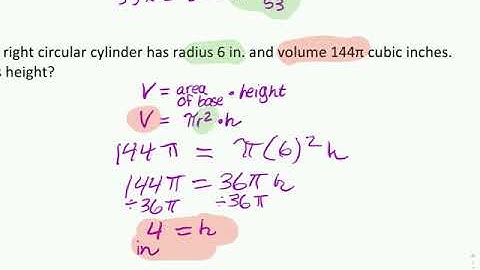 53
right circular cylinder has radius 6 in. and volume 144π cubic inches.
height?
V = area of base • height
V = πr² • h
144π = π(6)² h
144π = 36π h
÷36π ÷36π
4 = h
in